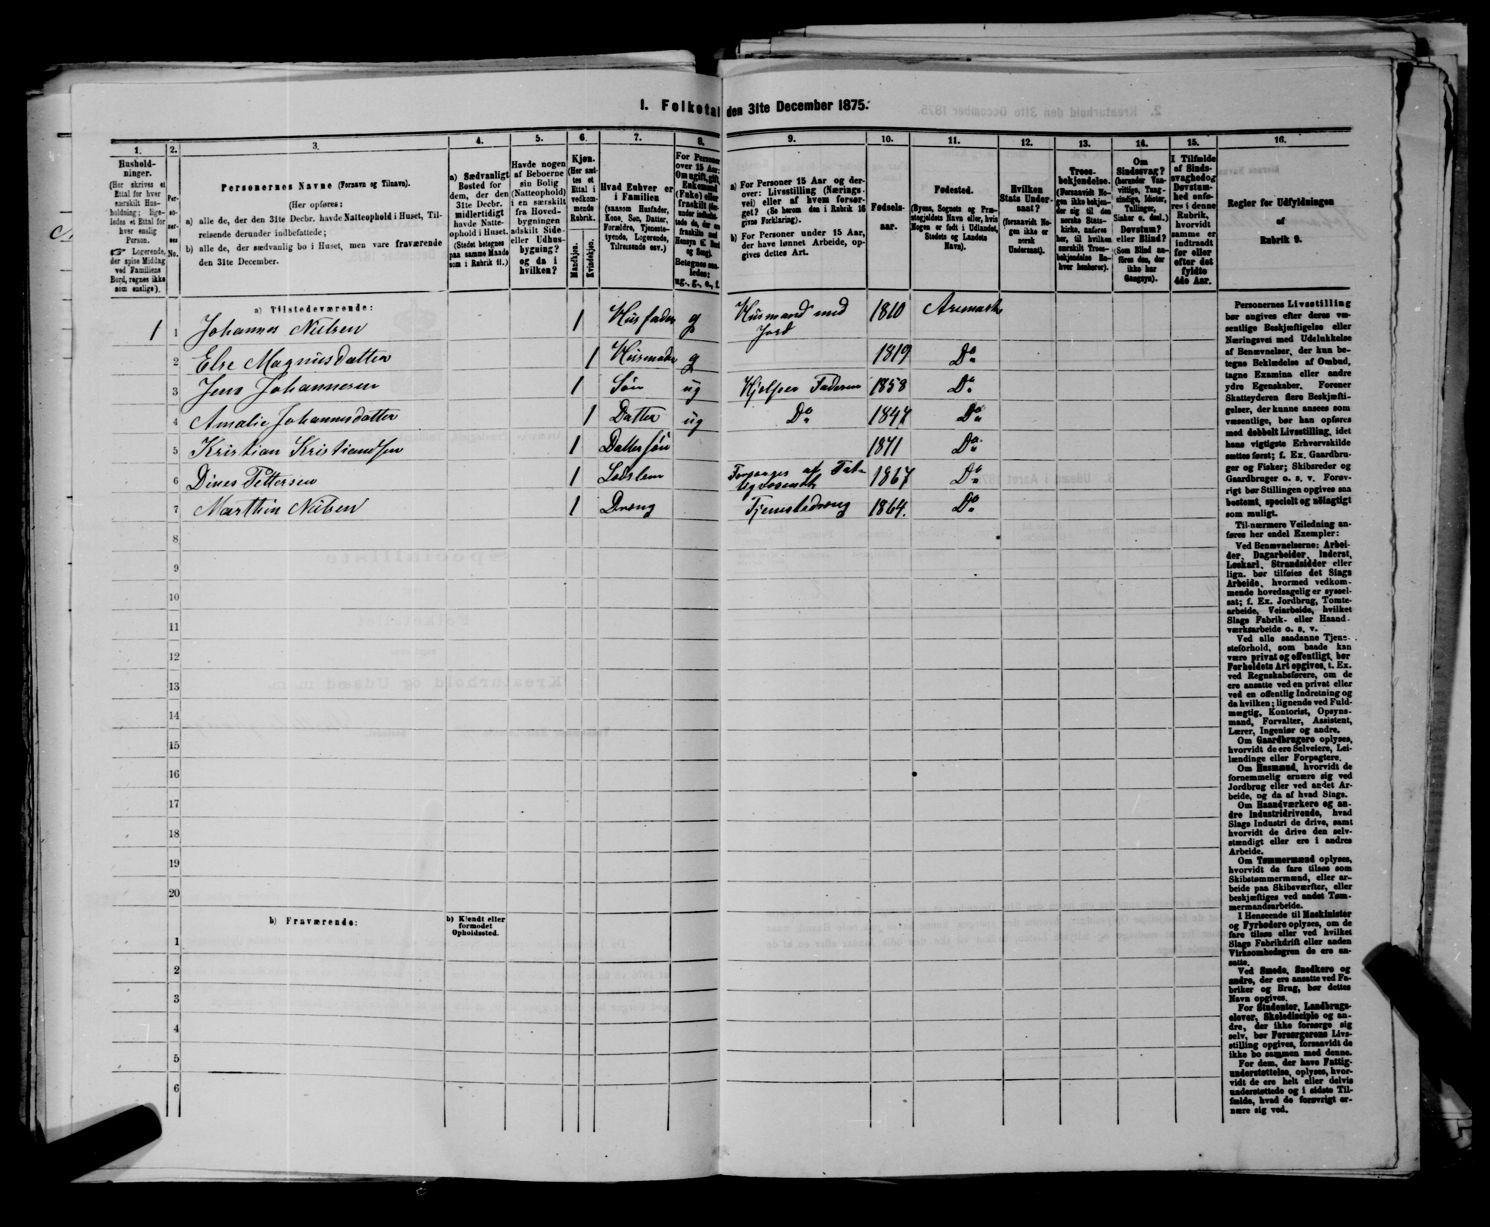 I. Folketal den 31te December 1875.
1. 2. 3. 4. 5. 6. 7. 8. 9. 10. 11. 12. 13. 14. 15. 16.
Hushold-
ninger.
(Her skrives et
Ettal for hver
særskilt Hus-
holdning; lige-
ledes et Ettal for
hver enslig
Person.
☞ Logerende,
der spise Middag
ved Familiens
Bord, regnes ikke
som enslige).
Per-
so-
ner-
nes
No.
Personernes Navne (Fornavn og Tilnavn).
(Her opføres:
a) alle de, der den 31te Decbr. havde Natteophold i Huset, Til-
reisende derunder indbefattede;
b) alle de, der sædvanlig bo i Huset, men vare fraværende
den 31te December.
a) Sædvanligt
Bosted for
dem, der den
31te Decbr.
midlertidigt
havde Natte-
ophold i Huset.
(Stedet betegnes
paa samme Maade
som i Rubrik 11.)
Havde nogen
af Beboerne
sin Bolig
(Natteophold)
i en særskilt
fra Hoved-
bygningen
adskilt Side-
eller Udhus-
bygning?
og da i
hvilken?
Kjøn.
(Her sæt-
tes et
Ettal i
vedkom-
mende
Rubrik.
Mandkjøn.
Kvindekjøn.
Hvad Enhver er
i Familien
(saasom Husfader,
Kone, Søn, Datter,
Forældre, Tjeneste-
tyende, Logerende,
Tilreisende osv.)
For Personer
over 15 Aar:
Om ugift, gift,
Enkemand
(Enke) eller
fraskilt
Betegnes saa-
ledes:
ug., g., e., f.
a) For Personer 15 Aar og der-
over: Livsstilling (Nærings-
vei) eller af hvem forsør-
get? (Se herom den i Rubrik 16
givne Forklaring).
b) For Personer under 15 Aar,
der have lønnet Arbeide, op-
gives dettes Art.
Fødsels-
aar.
Fødested.
(Byens, Sognets og Præ-
stegjeldets Navn eller, hvis
Nogen er født i Udlandet,
Stedets og Landets
Navn).
Hvilken
Stats Under-
saat?
(forsaavidt No-
gen ikke er
norsk
Undersaat).
Troes-
bekjendelse.
(Forsaavidt No-
gen ikke bekjen-
der sig til den
norske Stats-
kirke, anføres
her, til hvilken
særskilt Troes-
bekjendelse Re-
hver henhører).
Om
Sindssvag?
(herunder Van-
vittige, Tung-
sindige, Idioter,
Tullinger,
Sinker o. desl.)
Døvstum?
eller Blind?
(Som Blind an-
føres den, der
ikke har
Gangsyn).
I Tilfælde
af Sinds-
svaghed og
Døvstum-
hed anfø-
res i denne
Rubrik,
hvorvidt
samme er
indtraadt
før eller
efter det
fyldte
4de Aar.
Regler for Udfyldningen
af
Rubrik 9.
a) Tilstedeværende:
1 1 Johannes Nilsen 1 Husfader g Husmand med Jord 1810 Aremark
2 Else Magnusdatter 1 Husmoder g 1819 Do
3 Jens Johannesen 1 Søn ug Hjelper Faderen 1858 Do
4 Amalie Johannesdatter 1 Datter ug Do 1847 Do
5 Kristian Kristiansen 1 Dattersøn 1871 Do
6 Dines Pettersen 1 Lodslem Forsørges af Fattigvæsendet 1867 Do
7 Marthin Nilsen 1 Dreng Tjenestedreng 1864. Do
8
9
10
11
12
13
14
15
16
17
18
19
20
b) Fraværende:
b) Kjendt eller
formodet
Opholdssted.
1
2
3
4
5
6
Personernes Livsstilling
bør angives efter deres væ-
sentlige Beskjæftigelse eller
Næringsvei med Udelukkelse
af Benævnelser, der kun be-
tegne Beklædelse af Ombud,
tagne Examina eller andre
ydre Egenskaber. Forener
Skatteyderen flere Beskjæfti-
gelser, der kunne ansees som
væsentlige, bør han opføres
med dobbelt Livsstilling, idet
hans vigtigste Erhvervskilde
sættes først; f. Ex. Gaardbru-
ger og Fisker; Skibsreder og
Gaardbruger o. s. v. Forøv-
rigt bør Stillingen opgives saa
bestemt, specielt og nøiagtigt
som muligt.
Til nærmere Veiledning an-
føres her endel Exempler:
Ved Benævnelserne: Arbei-
der, Dagarbeider, Inderst,
Løskarl, Strandsidder eller
lign. bør tilføies det Slags
Arbeide, hvormed vedkom-
mende hovedsagelig er syssel-
sat; f. Ex. Jordbrug, Tomte-
arbeide, Veiarbeide, hvilket
Slags Fabrik- eller Haand-
værksarbeide o. s. v.
Ved alle saadanne Tjene-
steforhold, som baade kan
være privat og offentligt, bør
Forholdets Art opgives, t. Ex.
ved Regnskabsførere, om de
ere ansatte ved en privat eller
ved en offentlig Indretning og
da hvilken; lignende ved Fuld-
mægtig, Kontorist, Opsyns-
mand, Forvalter, Assistent,
Lærer, Ingeniør og andre.
Om Gaardbrugere oplyses,
hvorvidt de ere Selveiere, Lei-
lændinge eller Forpagtere.
Om Husmænd, hvorvidt de
fornemmelig ernære sig ved
Jordbrug eller ved andet Ar-
beide, og da af hvad Slags.
Om Haandværkere og an-
dre Industridrivende, hvad
Slags Industri de drive, samt
hvorvidt de drive den selv-
stændigt eller ere i andres
Arbeide.
Om Tømmermænd oplyses,
hvorvidt de fare tilsøs som
Skibstømmermænd, eller ar-
beide paa Skibsværfter, eller
beskjæftiges ved andet Tøm-
mermandsarbeide.
I Henseende til Maskinister
og Fyrbødere oplyses, om de
fare tilsøs eller ved hvilket
Slags Fabrikdrift eller anden
Virksomhedsgren de ere an-
satte.
Ved Smede, Snedkere og
andre, der ere ansatte ved Fa-
briker og Brug, bør dettes
Navn opgives.
For Studenter, Landbrugs-
elever, Skoledisciple og an-
dre, der ikke forsørge sig
selv, bør Forsørgerens Livs-
stilling opgives, forsaavidt de
ikke bo sammen med denne.
For dem, der have Fattig-
understøttelse, oplyses, hvor-
vidt de ere helt eller delvis
understøttede og i sidste Til-
fælde, hvad de forøvrigt er-
nære sig ved.